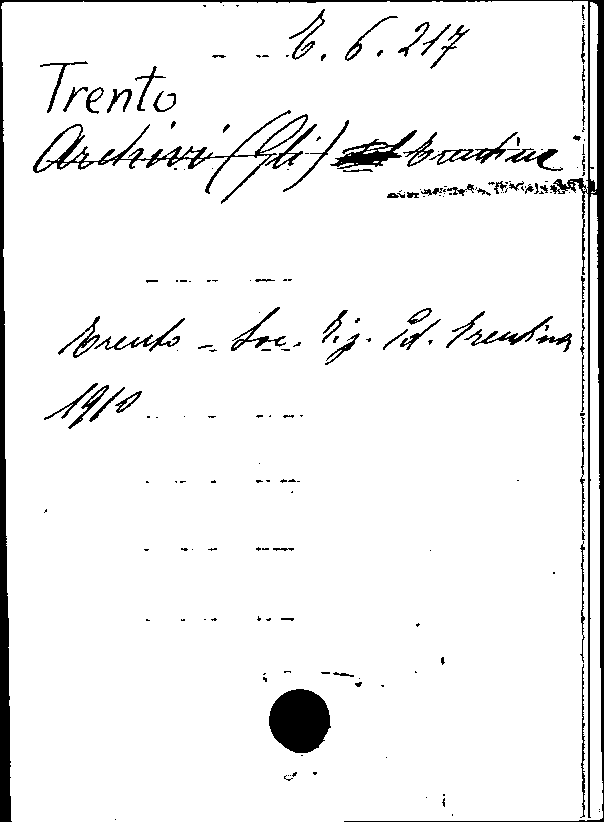 E. 6. 217
Trento
Archivi (Gli) Trentini
Trento - Soc. Tip. Ed. Trentina
1910